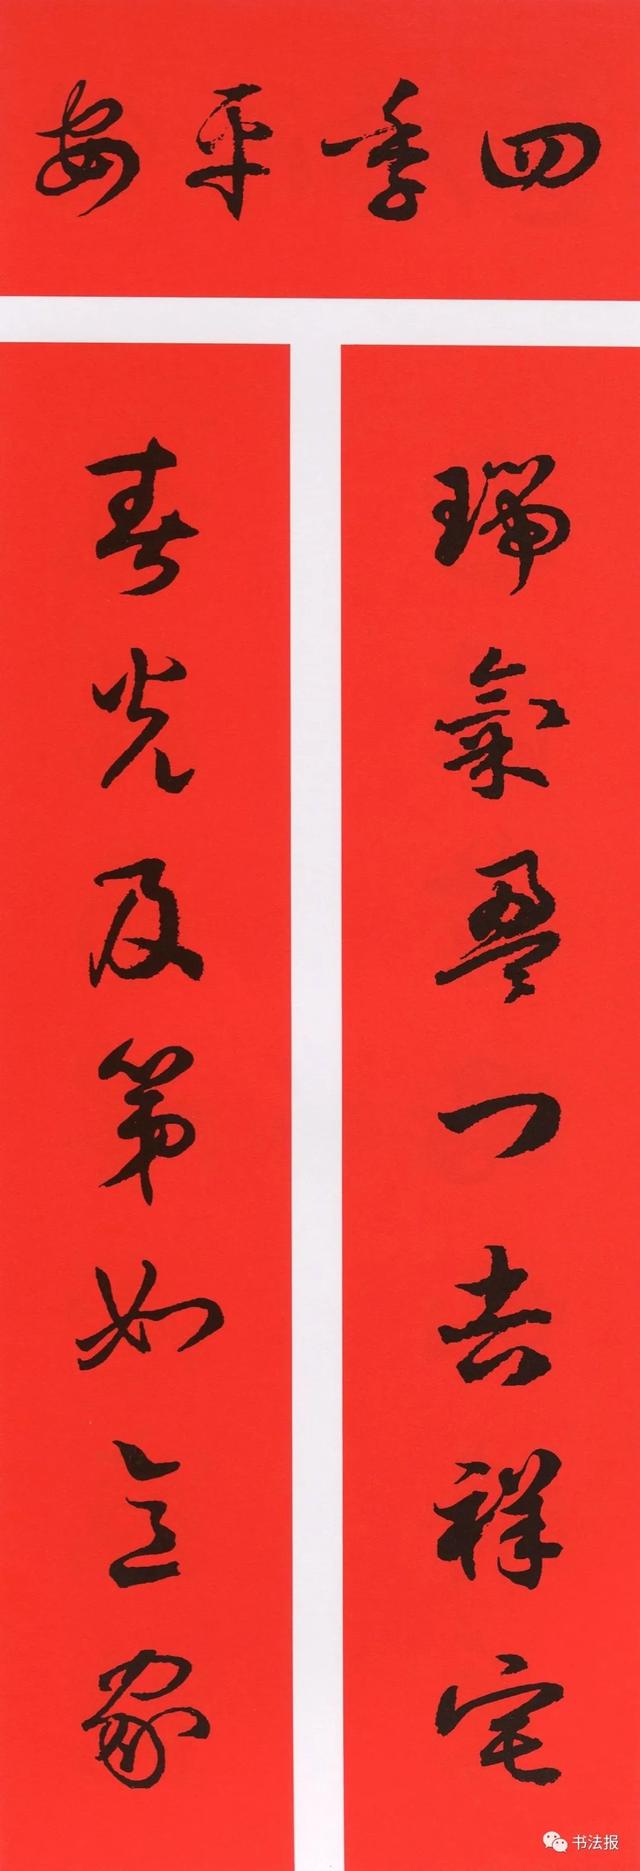 四季平安
瑞氣盈門吉祥宅
春光及第如意家
书法报